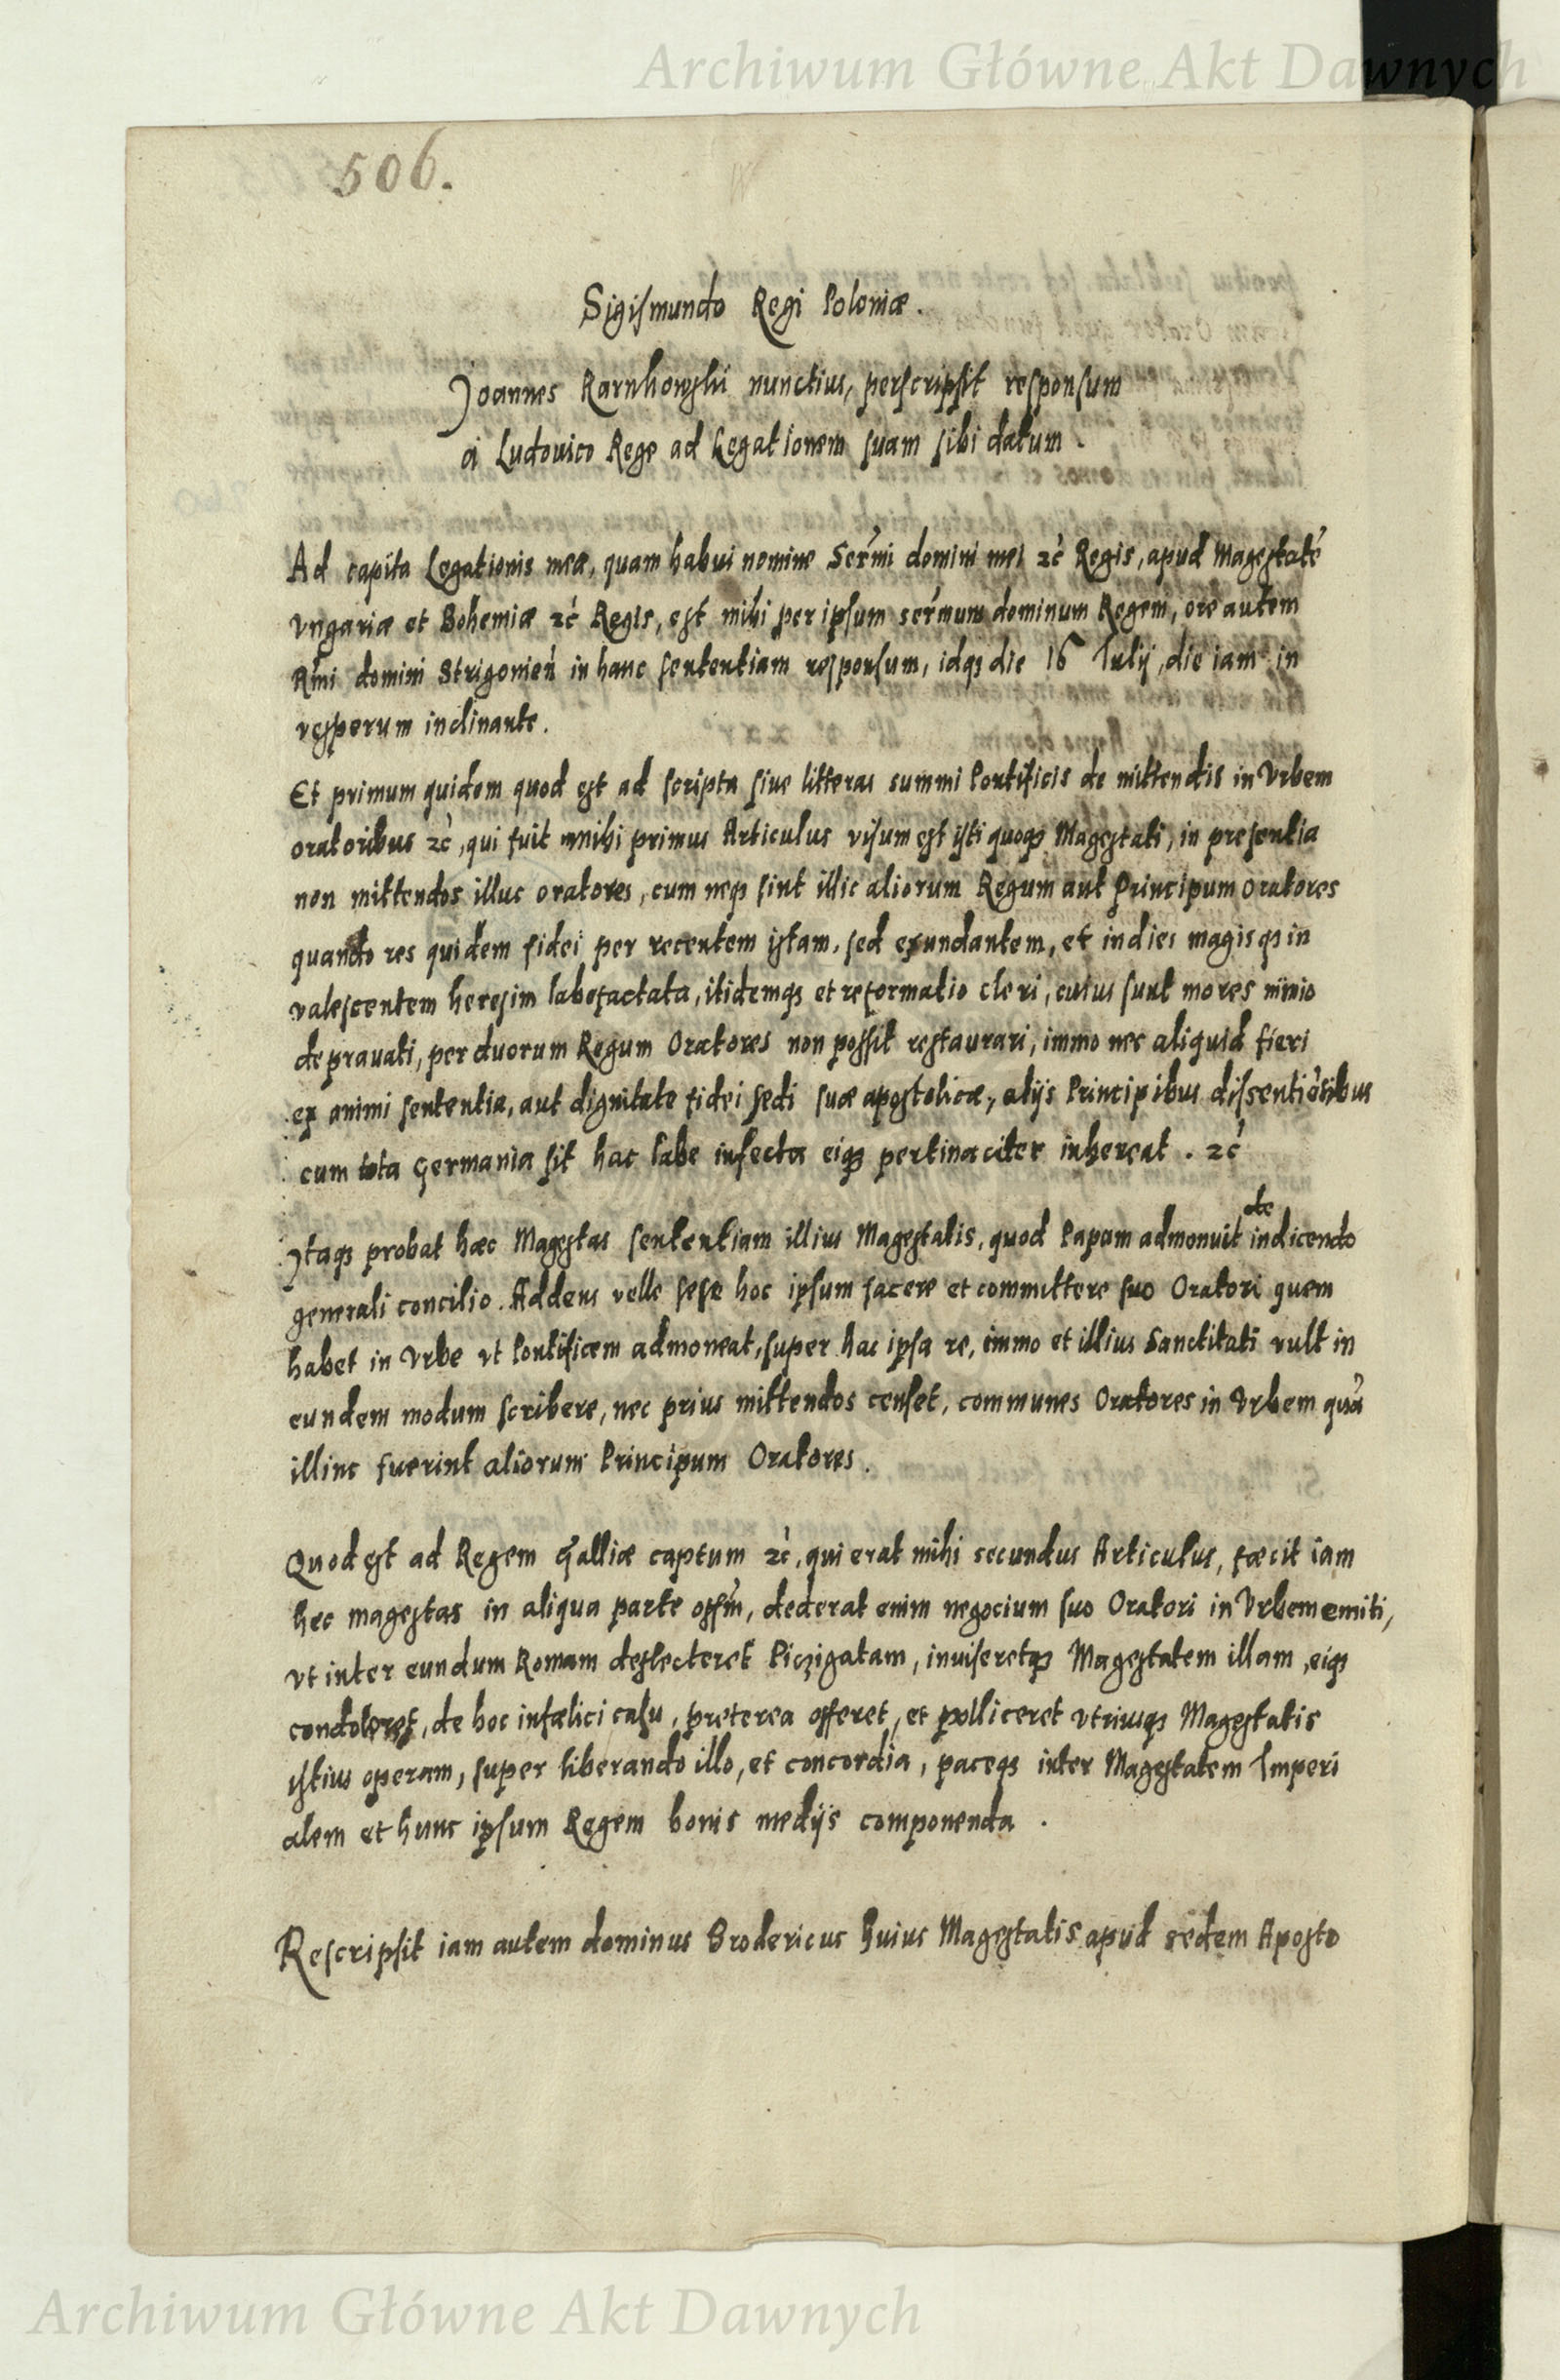 Archiwum Główne Akt Dawnych
506.
Sigismundo Regi Poloniæ.
Joannes Karnkowski nunctius, perscripsit responsum
a Ludouico Rege ad Legationem suam sibi datum.
Ad capita Legationis meæ, quam habui nomine Serm̃i domini mei ⁊c̃ Regis, apud Magestatẽ
Vngariæ et Bohemiæ ⁊c̃ Regis, est mihi per ipsum serm̃um dominum Regem, ore autem
Rm̃i domini Strigonieñ in hanc sententiam responsum, idqꝫ die 16 Iulij, die iam in
vesperum inclinante.
Et primum quidem quod est ad scripta siue litteras summi Pontificis de mittendis in Vrbem
oratoribus ⁊c̃, qui fuit mihi primus Articulus visum est isti quoqꝫ Magestati, in presentia
non mittendos illuc oratores, cum neqꝫ sint illic aliorum Regum aut Principum oratores
quando res quidem fidei per recentem istam, sed exundantem, et indies magisqꝫ in
valescentem heresim labefactata, itidemqꝫ et reformatio cleri, cuius sunt mores nimio
deprauati, per duorum Regum Oratores non possit restaurari, immo nec aliquid fieri
ex animi sententia, aut dignitate fidei sedi suæ apostolicæ, alijs Principibus dissentiẽtibus
cum tota Germania sit hac labe infecta eiqꝫ pertinaciter inhereat. ⁊c̃
Itaqꝫ probat hæc Magestas sententiam illius Magestatis, quod Papam admonuit de indicendo
generali concilio. Addens velle sese hoc ipsum facere et committere suo Oratori quem
habet in Vrbe vt Pontificem admoneat, super hac ipsa re, immo et illius Sanctitati vult in
eundem modum scribere, nec prius mittendos censet, communes Oratores in Vrbem quã
illinc fuerint aliorum Principum Oratores.
Quod est ad Regem Galliæ captum ⁊c̃, qui erat mihi secundus Articulus, fæcit iam
hec magestas in aliqua parte offm̃, dederat enim negocium suo Oratori in Vrbem emiti,
vt inter eundum Romam deflecteret Piczigatam, inuiseretqꝫ Magestatem illam, eiqꝫ
condoleret, de hoc infælici casu, preterea offeret, et polliceret vtriusqꝫ Magestatis
istius operam, super liberando illo, et concordia, paceqꝫ inter Magestatem Imperi
alem et hunc ipsum Regem bonis medijs componenda.
Rescripsit iam autem dominus Brodericus huius Magestatis apud sedem Aposto
Archiwum Główne Akt Dawnych